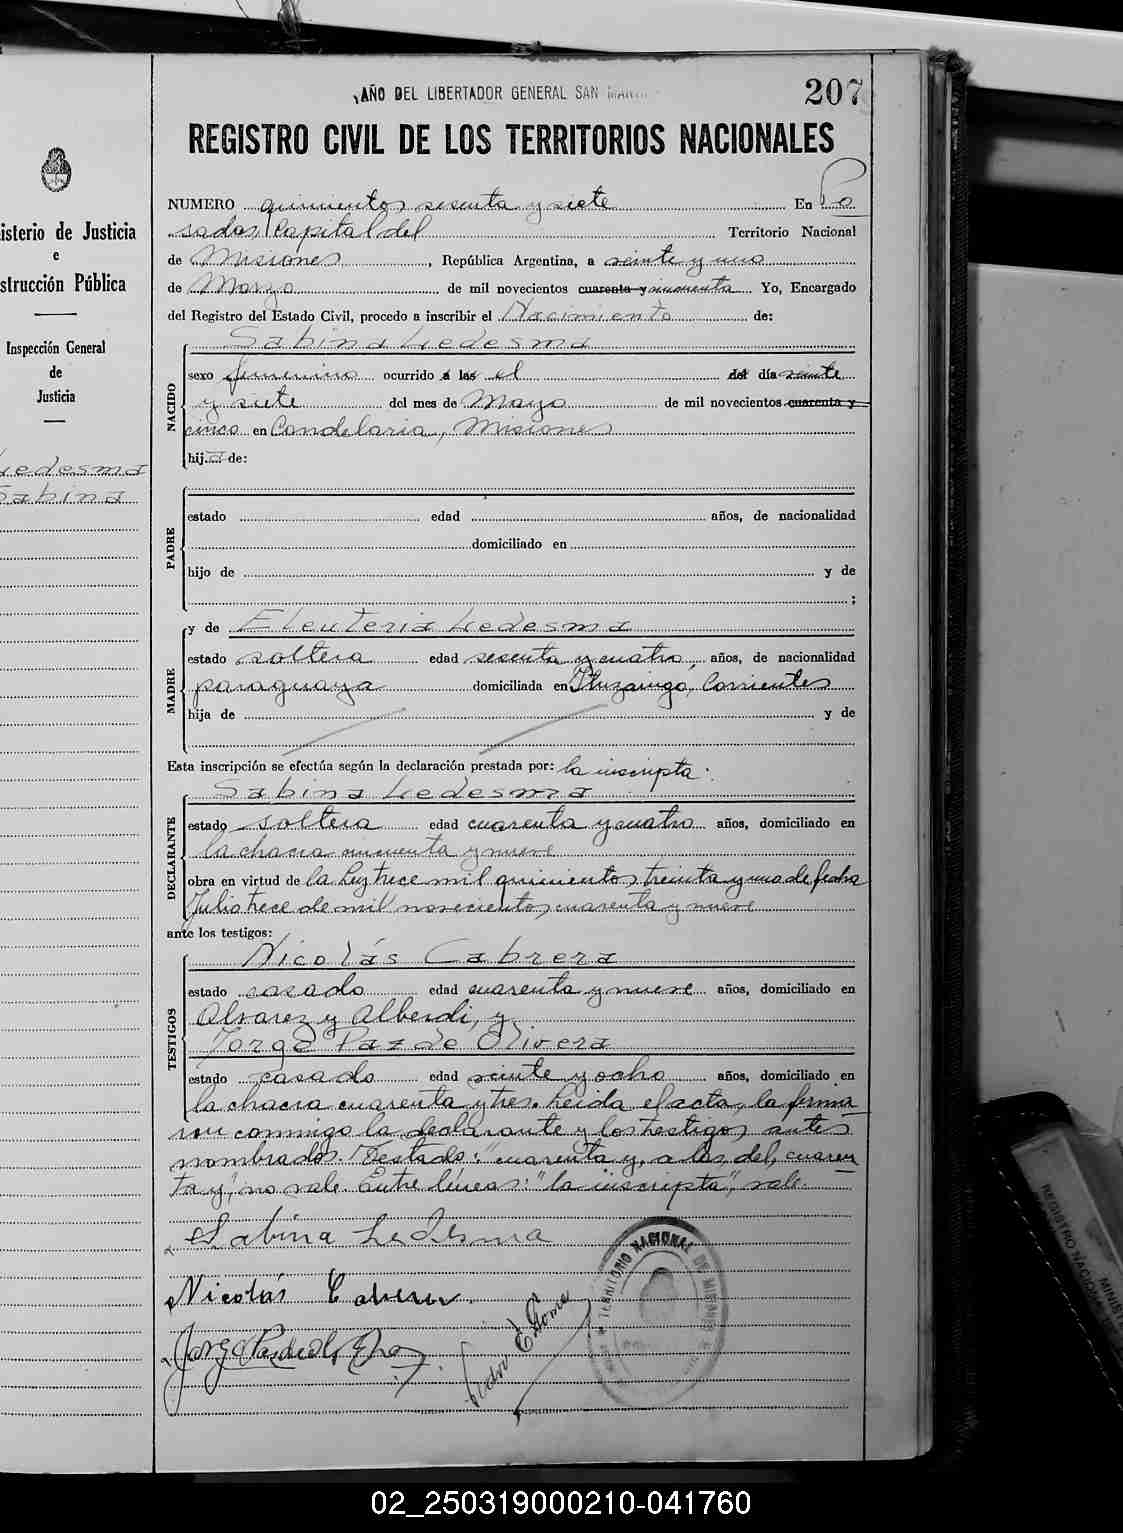 AÑO DEL LIBERTADOR GENERAL SAN MARTIN
207
REGISTRO CIVIL DE LOS TERRITORIOS NACIONALES
isterio de Justicia
e
strucción Pública
Inspección General
de
Justicia
Ledesma
Sabina
NUMERO quinientos sesenta y siete En Po
sadas, Capital del Territorio Nacional
de Misiones, República Argentina, a veinte y uno
de Marzo de mil novecientos cuarenta y cincuenta Yo, Encargado
del Registro del Estado Civil, procedo a inscribir el Nacimiento de:
NACIDO
Sabina Ledesma
sexo femenino ocurrido a las el del día veinte
y siete del mes de Mayo de mil novecientos cuarenta y
cinco en Candelaria, Misiones
hija de:
PADRE
estado edad años, de nacionalidad
domiciliado en
hijo de y de
;
MADRE
y de Eleuteria Ledesma
estado soltera edad sesenta y cuatro años, de nacionalidad
paraguaya domiciliada en Ituzaingó, Corrientes
hija de y de
Esta inscripción se efectúa según la declaración prestada por: la inscripta.
DECLARANTE
Sabina Ledesma
estado soltera edad cuarenta y cuatro años, domiciliado en
la chacra cincuenta y nueve
obra en virtud de la Ley trece mil quinientos treinta y uno de fecha
Julio trece de mil novecientos cuarenta y nueve
ante los testigos:
TESTIGOS
Nicolás Cabrera
estado casado edad cuarenta y nueve años, domiciliado en
Alvarez y Alberdi, y
Jorge Paz de Olivera
estado casado edad veinte y ocho años, domiciliado en
la chacra cuarenta y tres. Leida el acta, la firma
ron conmigo la declarante y los testigos antes
nombrados. Testado: "cuarenta y, a las, del, cuaren
ta y", no vale. Entre líneas: "la inscripta", vale.
Sabina Ledesma
Nicolás Cabrera
TERRITORIO NACIONAL DE MISIONES
REGISTRO NACIONAL
MINIST
02_250319000210-041760